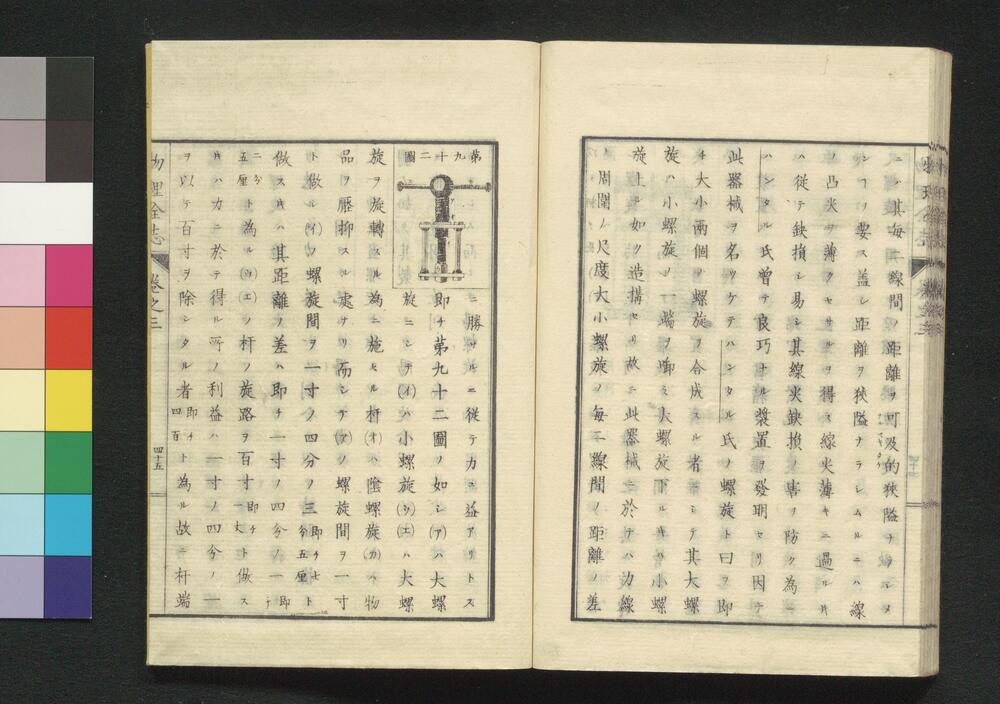 ニハ其毎一線間ノ距離ヲ可及的狹隘ナラシメ
ンヿヲ要ス蓋シ距離ヲ狹隘ナラシムルニハ線
ノ凸尖ヲ薄クセサルヲ得ス線尖薄キニ過ル片
ハ從テ鈌損シ易シ其線尖鈌損ノ害ヲ防ク為ニ
ハンタル氏曽テ良巧ナル裝置ヲ發明セリ因テ
此器械ヲ名ツケテハンタル氏ノ螺旋ト曰フ即
チ大小兩個ノ螺旋ヲ合成スル者ニシテ其大螺
旋ハ小螺旋ノ一端ヲ啣ミ大螺旋下ル片ハ小螺
旋上ル如ク造搆セリ故ニ此器械ニ於テハ力線
ノ周圍ノ尺度大小螺旋ノ毎一線間ノ距離ノ差
第九十二圖
ニ勝ツルニ從テカニ益アリトス
即チ第九十二圖ノ如シ(ア)ハ大螺
旋ニシテ(イ)ハ小螺旋(ウ)(エ)ハ大螺
旋ヲ旋轉スル為ニ施セル杆(オ)ハ陰螺旋(カ)ハ物
品ヲ壓抑スル處ナリ而シテ(ア)ノ螺旋間ヲ一寸
ト做シ(イ)ノ螺旋間ヲ一寸ノ四分ノ三即チ七分五厘ト
做ス片ハ其距離ノ差ハ即チ一寸ノ四分ノ一即チ
二分五厘ト為ル(ウ)(エ)ノ杆ノ旋路ヲ百寸即チ一丈ト做ス
片ハカニ於テ得ル所ノ利益ハ一寸ノ四分ノ一
ヲ以テ百寸ヲ除シタル者即チ四百ト為ル故ニ杆端
物理全志
卷之三
四十五